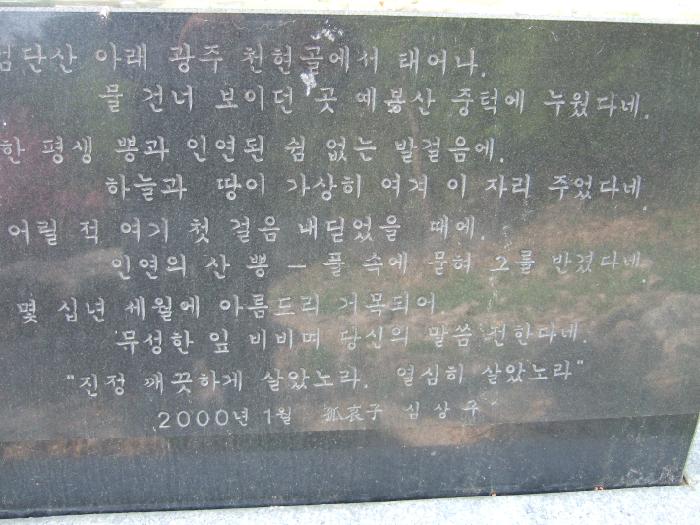 검단산 아래 광주 천현골에서 태어나.
물 건너 보이던 곳 예봉산 중턱에 누웠다네.
한 평생 뽕과 인연된 쉼 없는 발걸음에.
하늘과 땅이 가상히 여겨 이 자리 주었다네
어릴 적 여기 첫 걸음 내딛었을 때에.
인연의 산 뽕 - 풀 속에 묻혀 그를 반겼다네
몇 십년 세월에 아름드리 거목되어
무성한 잎 비비며 당신의 말씀 전한다네.
"진정 깨끗하게 살았노라. 열심히 살았노라"
2000년 1월 孤哀子 심상